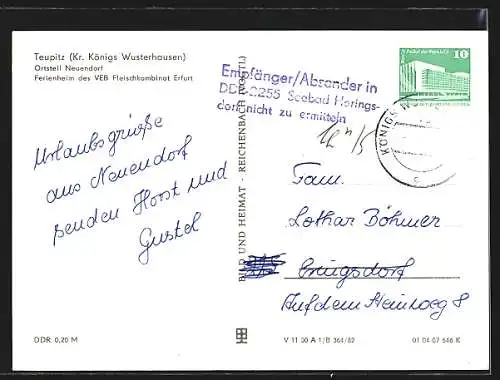 Teupitz (Kr. Königs Wusterhausen)
Ortsteil Neuendorf
Ferienheim des VEB Fleischkombinat Erfurt
Urlaubsgrüße
aus Neuendorf
senden Horst und
Gustel
DDR: 0,20 M
BILD UND HEIMAT · REICHENBACH (VOGTL)
Empfänger/Absender in
DDR-2255 Seebad Herings-
dorf nicht zu ermitteln
10
KÖNIGS W
Fam.
Lothar Böhmer
Auf dem
8
V 11 50 A 1/B 364/82
01 04 07 546 K